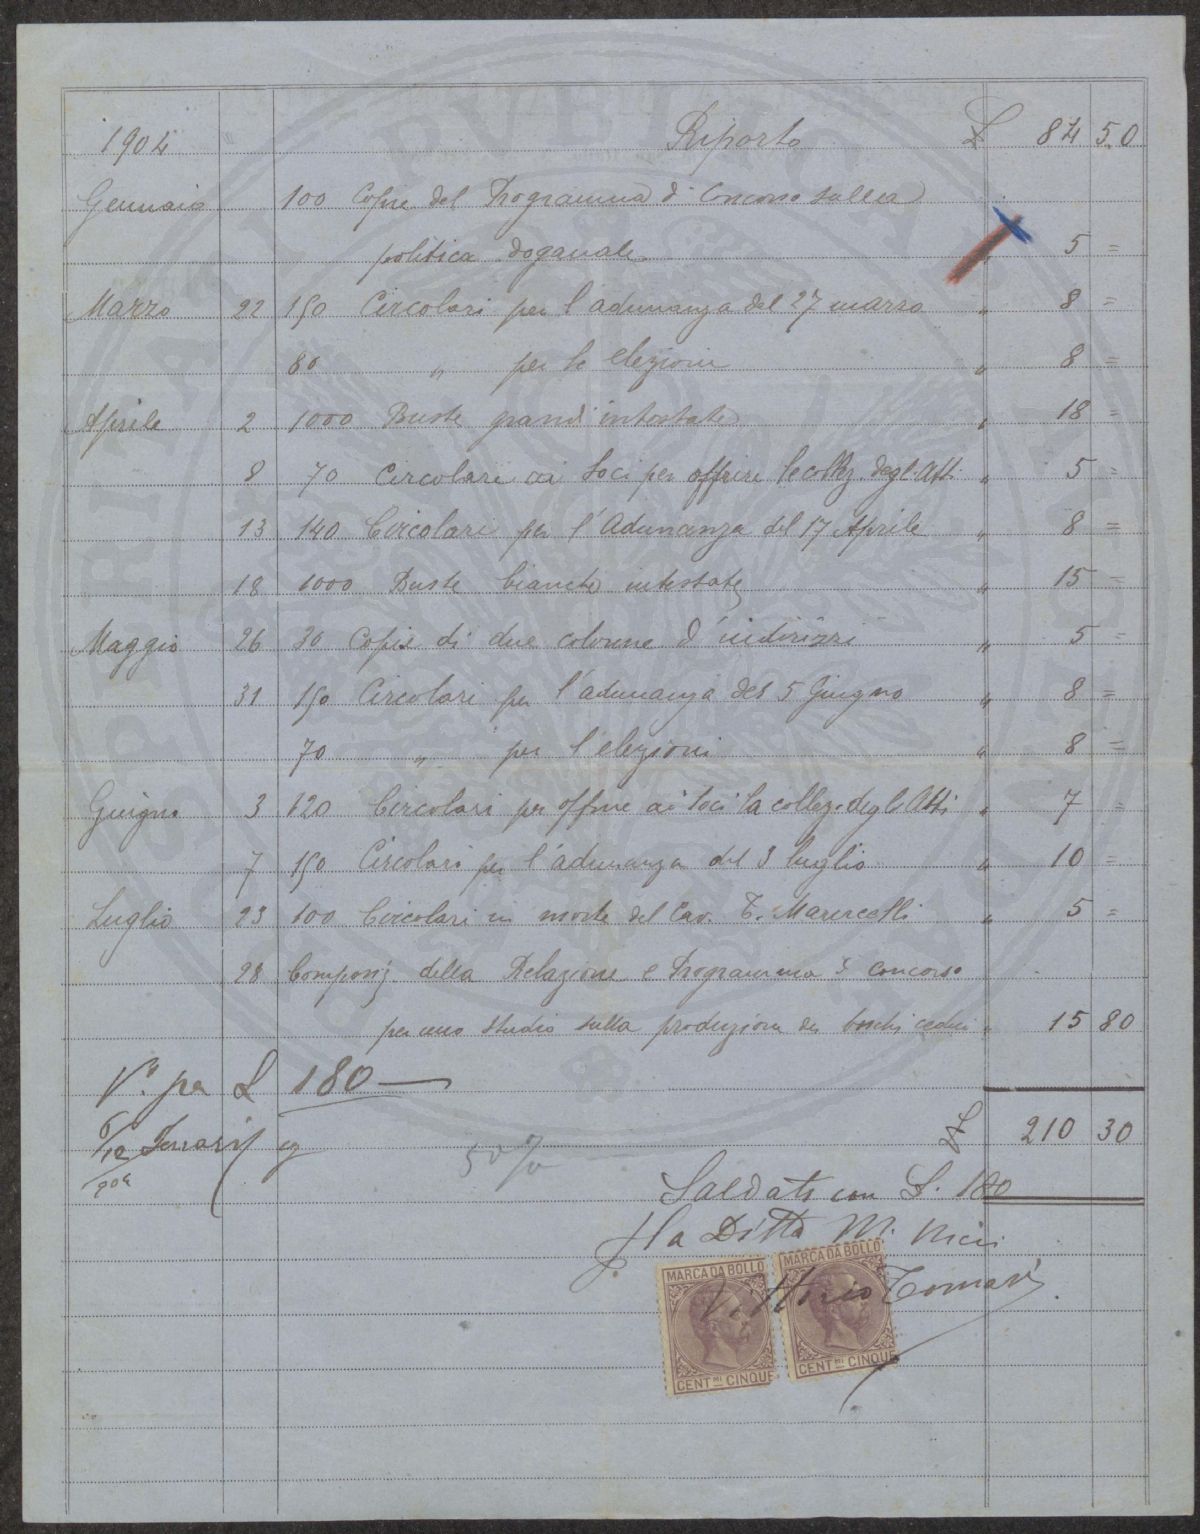 1904 Riporto £ 84 50
Gennaio 100 Copie del Programma di Concorso sulla
politica doganale " 5 =
Marzo 22 150 Circolari per l'adunanza del 27 marzo " 8 =
80 " per le elezioni " 8 =
Aprile 2 1000 Buste grandi intestate " 18 =
8 70 Circolari ai Soci per offrire le collez. degli Atti " 5 =
13 140 Circolari per l'Adunanza del 17 Aprile " 8 =
18 1000 Buste bianche intestate " 15 =
Maggio 26 30 Copie di due colonne d'indirizzi " 5 =
31 150 Circolari per l'adunanza del 5 Giugno " 8 =
70 " per l'elezioni " 8 =
Giugno 3 120 Circolari per offrire ai Soci la collez. degli Atti " 7 =
7 150 Circolari per l'adunanza del 3 luglio " 10 =
Luglio 23 100 Circolari in morte del Cav. T. " 5 =
28 Composiz. della Relazione e Programma di concorso
per uno studio sulla produzione dei boschi cedui " 15 80
V° per £ 180 —
£ 210 30
6/12
904
50%
Saldato con £. 180
p. la Ditta M. Ricci
Vittorio Tomasi
MARCA DA BOLLO MARCA DA BOLLO
CENT.MI CINQUE CENT.MI CINQUE
PROSPERITATI PVBLICAE AVGENDAE